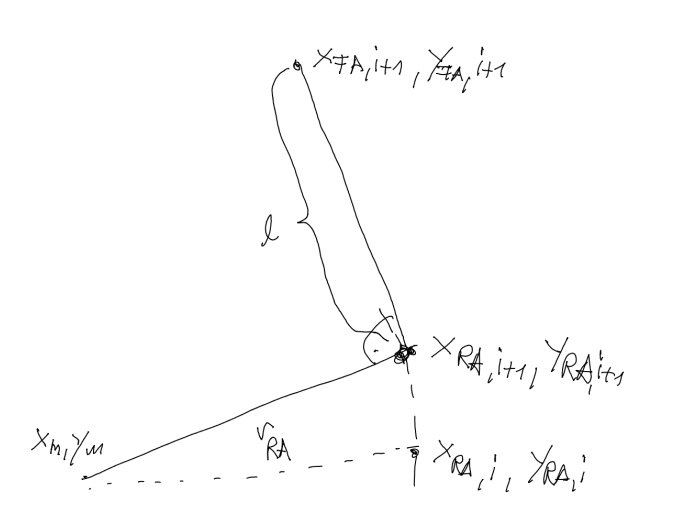 x_FA,i+1 , y_FA,i+1
l
x_RA,i+1, y_RA,i+1
x_m, y_m
r_RA
x_RA,i, y_RA,i